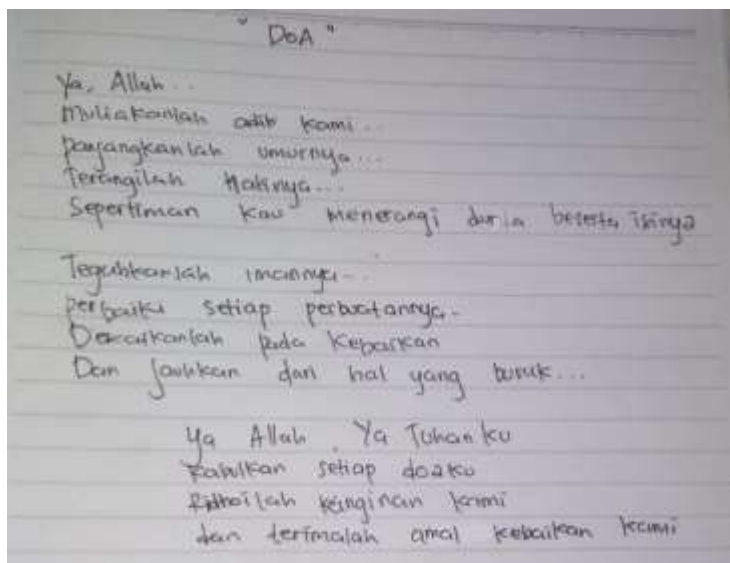 " DOA "
Ya, Allah..
Muliakanlah adik kami...
panjangkanlah umurnya...
Terangilah Hatinya...
Sepertiman Kau Menerangi dunia beserta isinya
Teguhkanlah imannya...
perbaiki setiap perbuatannya.
Dekatkanlah pada Kebaikan
Dan jauhkan dari hal yang buruk...
Ya Allah Ya Tuhanku
Kabulkan setiap doaku
Ridhoilah keinginan kami
dan terimalah amal kebaikan kami